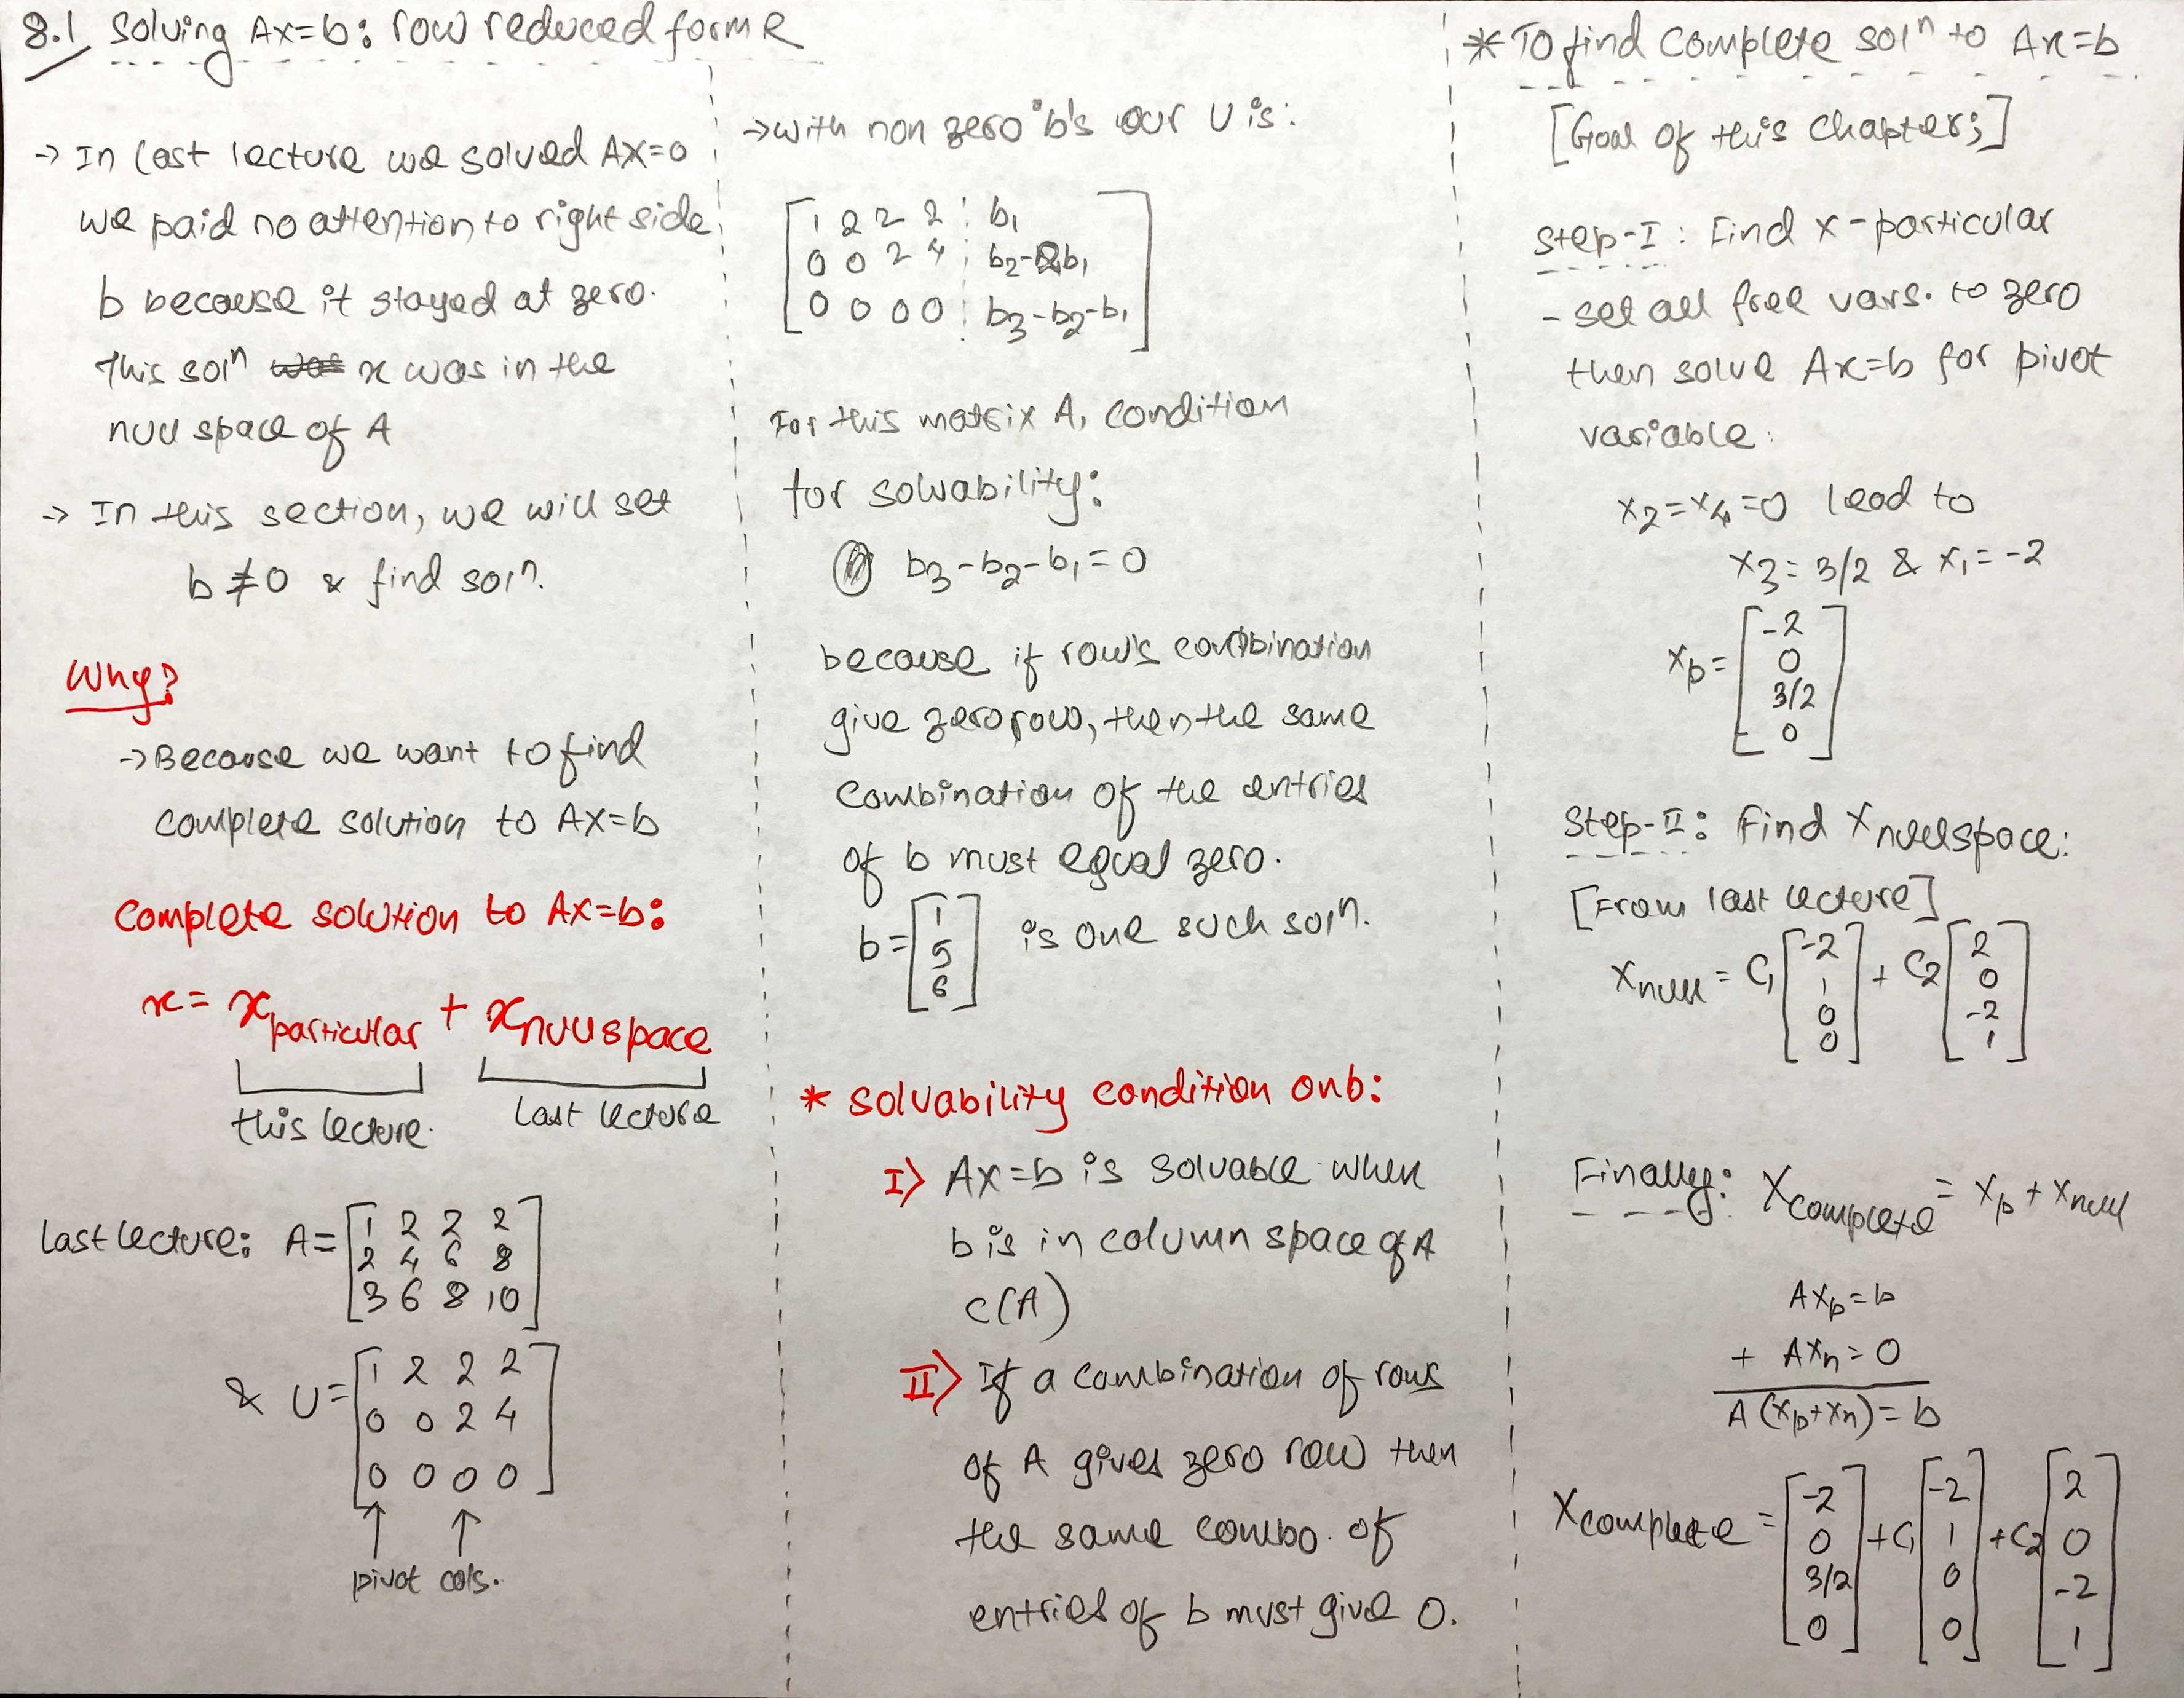 8.1 Solving Ax=b: row reduced form R
-> In last lecture we solved AX=0
we paid no attention to right side
b because it stayed at zero.
This solⁿ x was in the
null space of A
-> In this section, we will set
b ≠ 0 & find solⁿ.
Why?
-> Because we want to find
complete solution to AX=b
Complete solution to AX=b:
x = x particular + x nullspace
this lecture. last lecture
Last lecture: A= [1 2 2 2
2 4 6 8
3 6 8 10]
& U= [1 2 2 2
0 0 2 4
0 0 0 0]
↑ ↑
pivot cols.
-> with non zero b's our U is:
[1 2 2 2 : b₁
0 0 2 4 : b₂-2b₁
0 0 0 0 : b₃-b₂-b₁]
For this matrix A, condition
for solvability:
b₃-b₂-b₁=0
because if row's combination
give zero row, then the same
combination of the entries
of b must equal zero.
b= [1
5
6] is one such solⁿ.
* Solvability condition on b:
I> AX=b is solvable when
b is in column space of A
C(A)
II> If a combination of rows
of A gives zero row then
the same combo. of
entries of b must give 0.
* To find complete solⁿ to Ax=b
[Goal of this chapter;]
Step-I: Find x-particular
- set all free vars. to zero
then solve Ax=b for pivot
variable:
x₂=x₄=0 lead to
x₃=3/2 & x₁=-2
xp= [-2
0
3/2
0]
Step-II: Find x nullspace:
[From last lecture]
x null = C₁ [-2 1 0 0] + C₂ [2 0 -2 1]
Finally: X complete = xp + x null
Axp=b
+ Axn=0
A(xp+xn)=b
X complete = [-2 0 3/2 0] +C₁ [-2 1 0 0] +C₂ [2 0 -2 1]